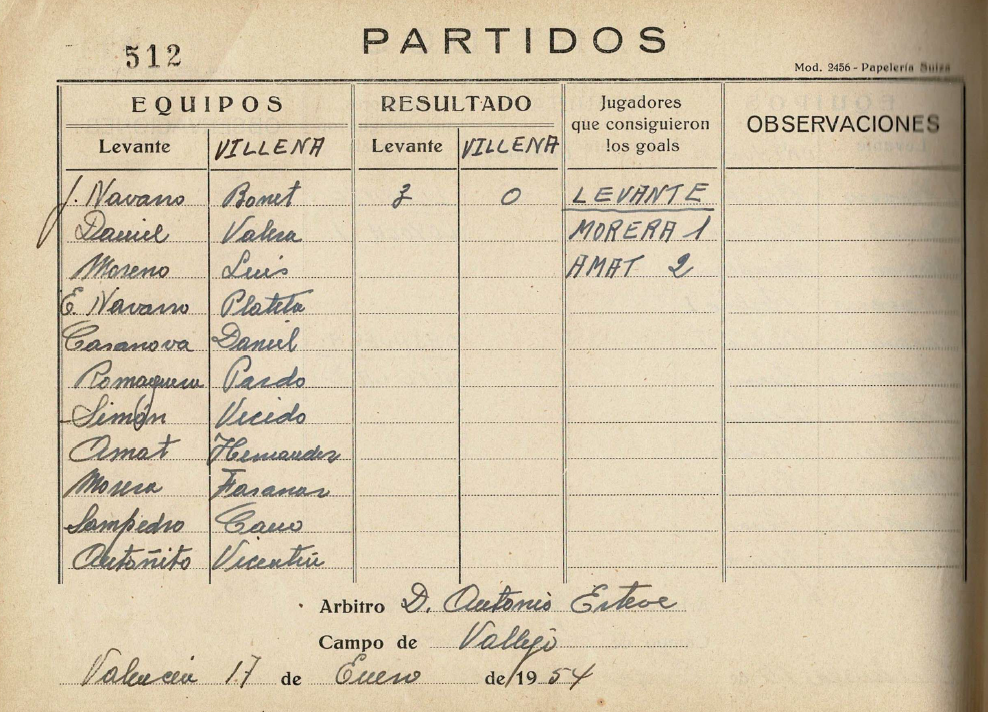 512 PARTIDOS
Mod. 2456 - Papelería Suiza
EQUIPOS RESULTADO Jugadores que consiguieron los goals OBSERVACIONES
Levante VILLENA Levante VILLENA
J. Navarro Bonet 3 0 LEVANTE
Daniel Valera MORERA 1
Moreno Luis AMAT 2
E. Navarro Platita
Casanova Daniel
Romaguera Pardo
Simón Vicedo
Amat Hernandez
Morera
Sampedro Cano
Antoñito Vicentín
Arbitro D. Antonio Esteve
Campo de Vallejo
Valencia 17 de Enero de 1954